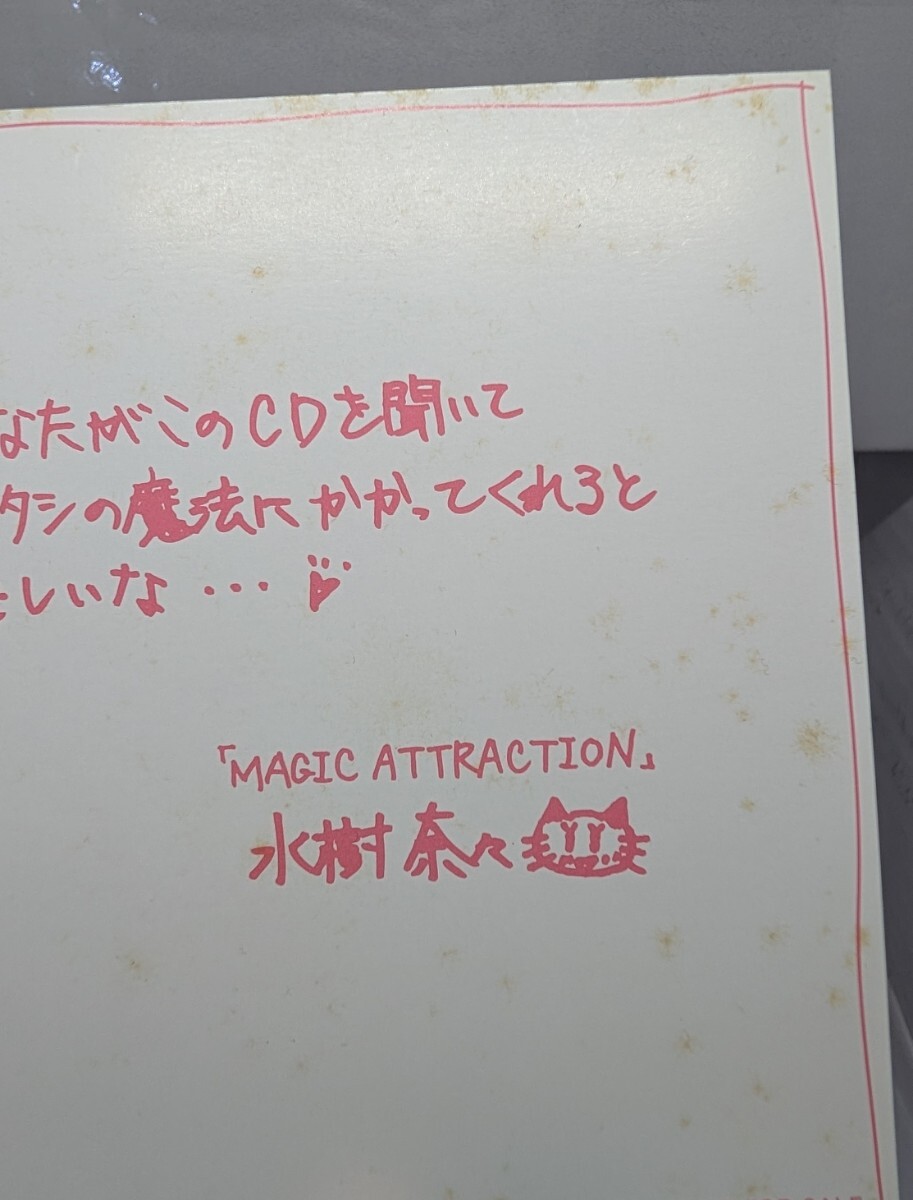 なたがこのCDを聞いて
タシの魔法にかかってくれると
しいな…
「MAGIC ATTRACTION」
水樹奈々